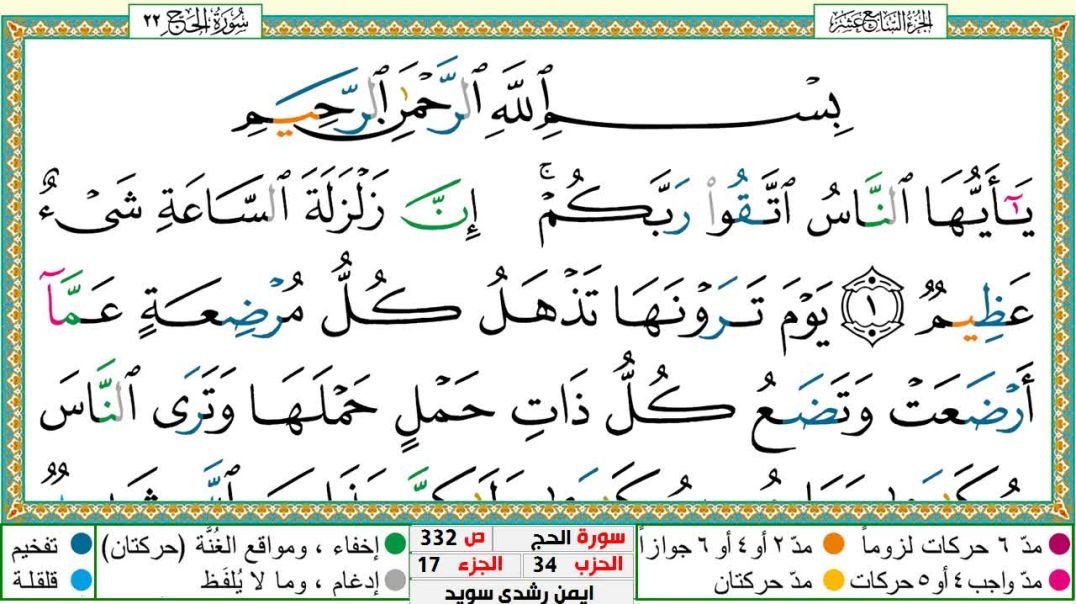 الجزء السابع عشر
سورة الحج ٢٢
بِسْمِ ٱللَّهِ ٱلرَّحْمَٰنِ ٱلرَّحِيمِ
يَـٰٓأَيُّهَا ٱلنَّاسُ ٱتَّقُوا۟ رَبَّكُمْ ۚ إِنَّ زَلْزَلَةَ ٱلسَّاعَةِ شَىْءٌ
عَظِيمٌ ١ يَوْمَ تَرَوْنَهَا تَذْهَلُ كُلُّ مُرْضِعَةٍ عَمَّآ
أَرْضَعَتْ وَتَضَعُ كُلُّ ذَاتِ حَمْلٍ حَمْلَهَا وَتَرَى ٱلنَّاسَ
مدّ ٦ حركات لزوماً مدّ ٢ أو ٤ أو ٦ جوازاً
مدّ واجب ٤ أو ٥ حركات مدّ حركتان
سورة الحج ص 332
الحزب 34 الجزء 17
ايمن رشدي سويد
إخفاء ، ومواقع الغُنَّة (حركتان) تفخيم
إدغام ، وما لا يُلفَظ قلقلة